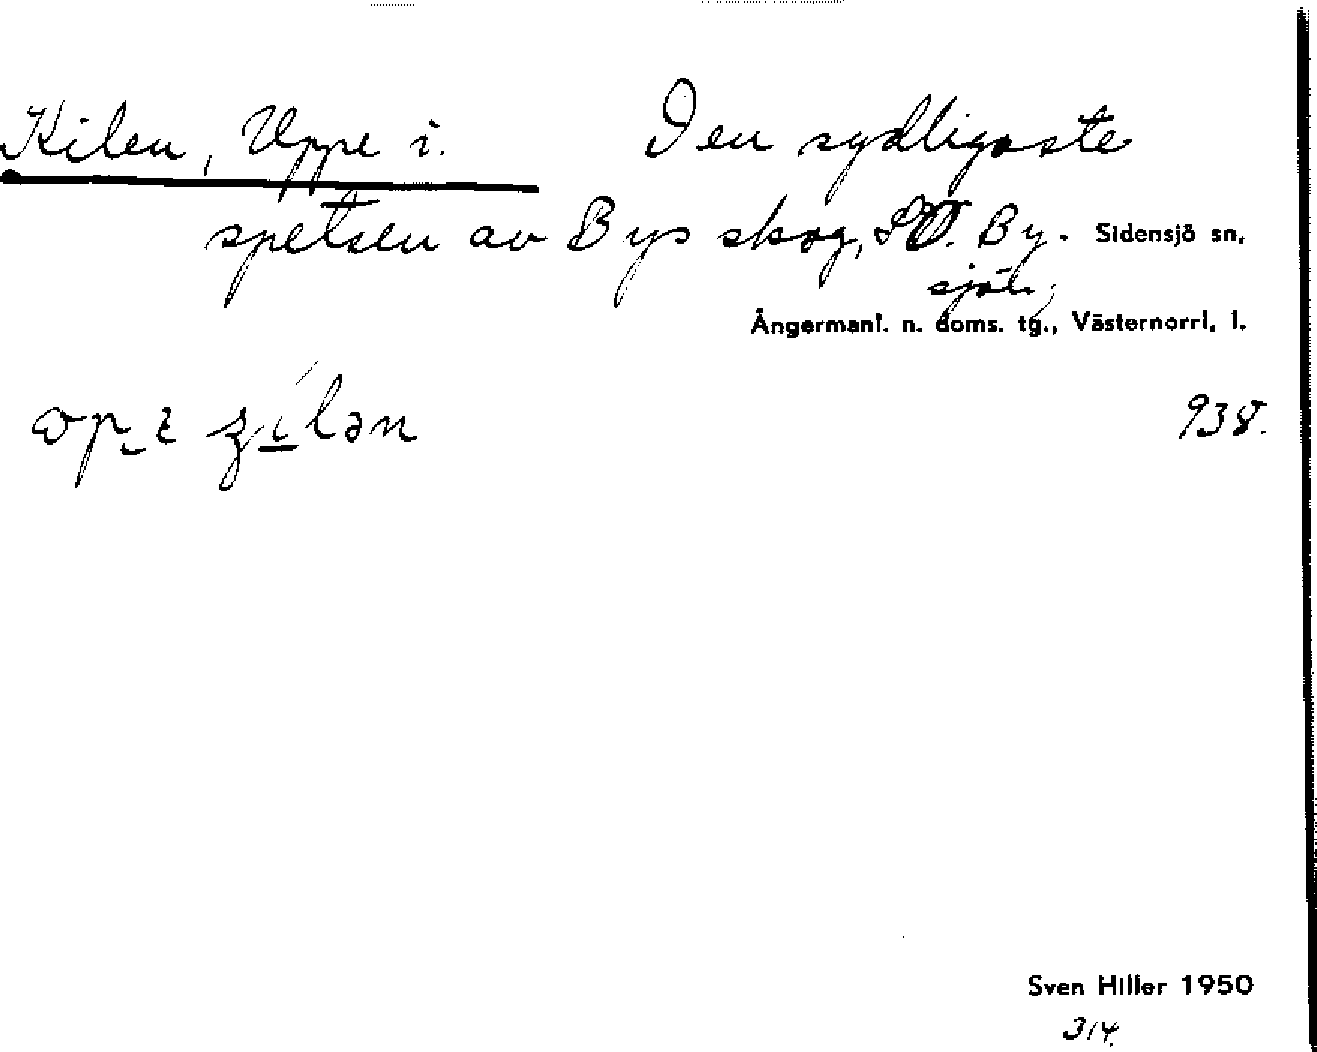 Kilen, Uppe i. Den sydligaste
spetsen av Bys skog, SO. By-
sjön, Sidensjö sn,
Ångermanl. n. doms. tg., Västernorrl. l.
938.
Sven Hiller 1950
314